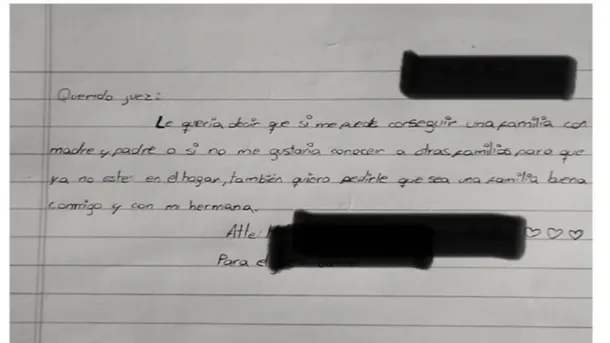 Querido juez:
Le quería decir que si me puede conseguir una familia con
madre y padre o si no me gustaría conocer a otras familias para que
ya no este en el hogar, también quiero pedirle que sea una familia buena
conmigo y con mi hermana.
Atte:
Para el